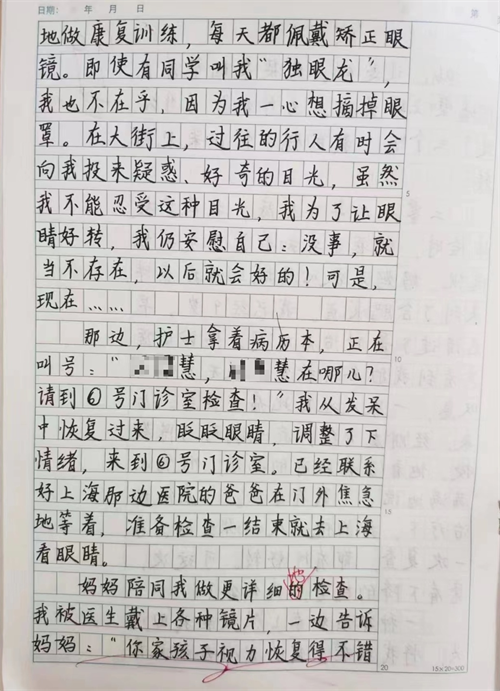 日期： 年 月 日 第
地做康复训练，每天都佩戴矫正眼
镜。即使有同学叫我“独眼龙”，
我也不在乎，因为我一心想摘掉眼
罩。在大街上，过往的行人有时会
向我投来疑惑、好奇的目光，虽然
我不能忍受这种目光，我为了让眼
睛好转，我仍安慰自己：没事，就
当不存在，以后就会好的！可是，
现在……
那边，护士拿着病历本，正在
叫号：“慧，慧在哪儿？
请到⑥号门诊室检查！”我从发呆
中恢复过来，眨眨眼睛，调整了下
情绪，来到⑥号门诊室。已经联系
好上海那边医院的爸爸在门外焦急
地等着，准备检查一结束就去上海
看眼睛。
妈妈陪同我做更详细的检查。
我被医生戴上各种镜片，一边告诉
妈妈：“你家孩子视力恢复得不错
5
10
15
20
15×20=300